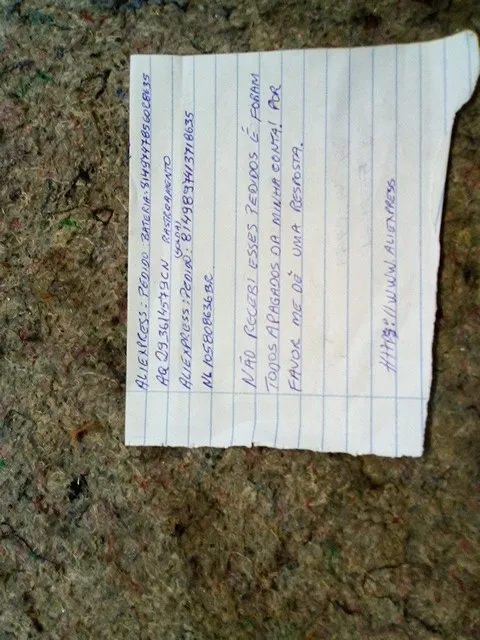 ALIEXPRESS: PEDIDO BATERIA: 8149747856028635
AQ293614579CN RASTREAMENTO
ALIEXPRESS: PEDIDO: 8149837413718635
NL10580863636BC
NÃO RECEBI ESSES PEDIDOS É FORAM
TODOS APAGADOS DA MINHA CONTA! POR
FAVOR ME DÊ UMA RESPOSTA.